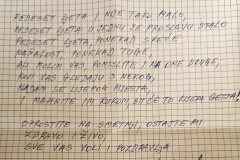 PEDESET LJETA I NIJE TAKO MALO,
PEDESET LJETA U JEDNU SE PROČAVU STALO
PEDESET LJETA, PONEKAD SREĆE
NAŽALOST PONEKAD TUGE,
ALI MOLIM VAS, POMISLITE I NA ONE DRUGE,
KOJI VAS GLEDAJU S NEKOG,
NADAM SE LIJEPOG MJESTA,
I MAHNITE IM RUKOM BIT ĆE TO LIJEPA GESTA!
OPROSTITE NA SMETNJI, OSTAJTE MI
ZDRAVO I ŽIVO,
SVE VAS VOLI I POZDRAVLJA